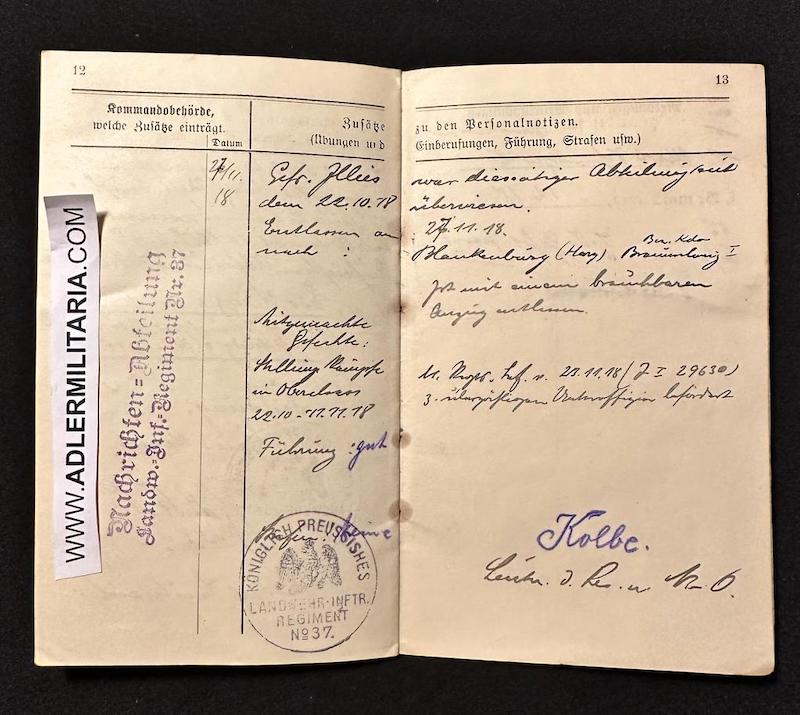 12
Kommandobehörde,
welche Zusätze einträgt.
Datum
Zusätze
(Übungen und
27/11.
18.
Gefr. Illies
dem 22.10.18
Entlassen am
nach :
Mitgemachte
Gefechte:
Stellungskämpfe
in Oberelsass
22.10-11.11.18
Führung: gut
Strafen: keine
Nachrichten=Abteilung
Landw.=Inf.=Regiment Nr. 37
KÖNIGLICH PREUSSISHES
LANDWEHR-INFTR.
REGIMENT
No 37.
WWW.ADLERMILITARIA.COM
13
zu den Personalnotizen.
Einberufungen, Führung, Strafen usw.)
war diesseitiger Abteilung seit
überwiesen.
27.11.18.
Blankenburg (Harz) Bez. Kdo Braunschweig I
Ist mit einem brauchbaren
Anzug entlassen.
21.11.18 (J I 29630)
z. überzähligen Unteroffizier befördert
Kolbe.
Leutn. d. Res. u.